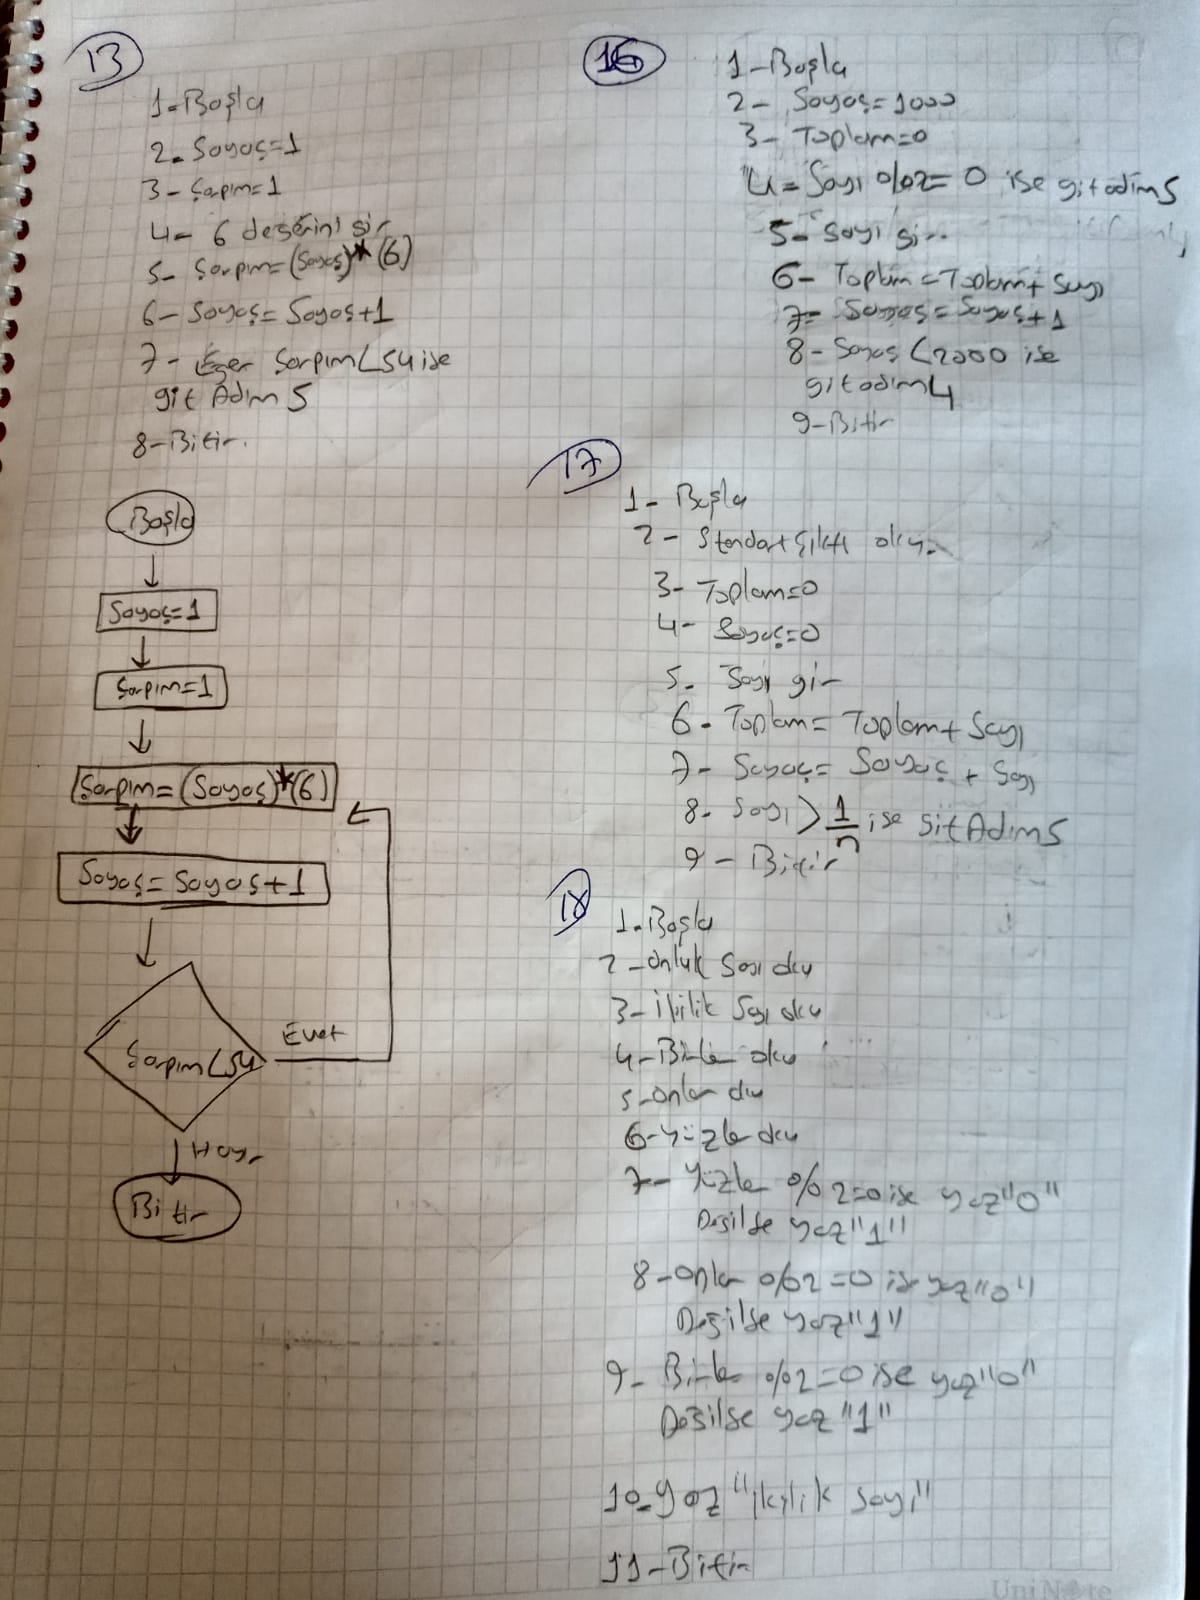 13
1-Başla
2-Sayaç=1
3-Çarpım=1
4- 6 değerini gir
5- Çarpım=(Sayaç)*(6)
6-Sayaç=Sayaç+1
7- Eğer Çarpım<54 ise
git Adım 5
8-Bitir.
Başla
Sayaç=1
Çarpım=1
Çarpım=(Sayaç)*(6)
Sayaç=Sayaç+1
Çarpım<54
Evet
Hayır
Bitir
16
1-Başla
2- Sayaç=1000
3- Toplam=0
4- Sayı %2=0 ise git adım 5
5- Sayı gir.
6- Toplam=Toplam+Sayı
7- Sayaç=Sayaç+1
8- Sayaç<2000 ise
git adım 4
9-Bitir
17
1- Başla
2- Standart Çıktı oku.
3- Toplam=0
4- Sayaç=0
5- Sayı gir
6- Toplam= Toplam+ Sayı
7- Sayaç= Sayaç + Sayı
8- Sayı>1/n ise git Adım 5
9- Bitir
18
1-Başla
2-Onluk Sayı oku
3-İkilik Sayı oku
4-Birler oku
5-Onlar oku
6-Yüzler oku
7- Yüzler %2=0 ise yaz"0"
Değilse yaz"1"
8-Onlar %2=0 ise yaz"0"
Değilse yaz"1"
9- Birler %2=0 ise yaz"0"
Değilse yaz "1"
10-Yaz "ikilik Sayı"
11-Bitir
UniNote